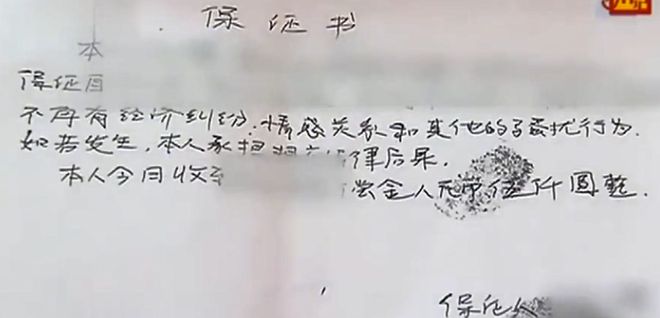 保证书
本
保证自
不再有经济纠纷.情感关系和其他的骚扰行为.
如若发生,本人承担 律后果.
本人今日收到 偿金人民币伍仟圆整.
保证人